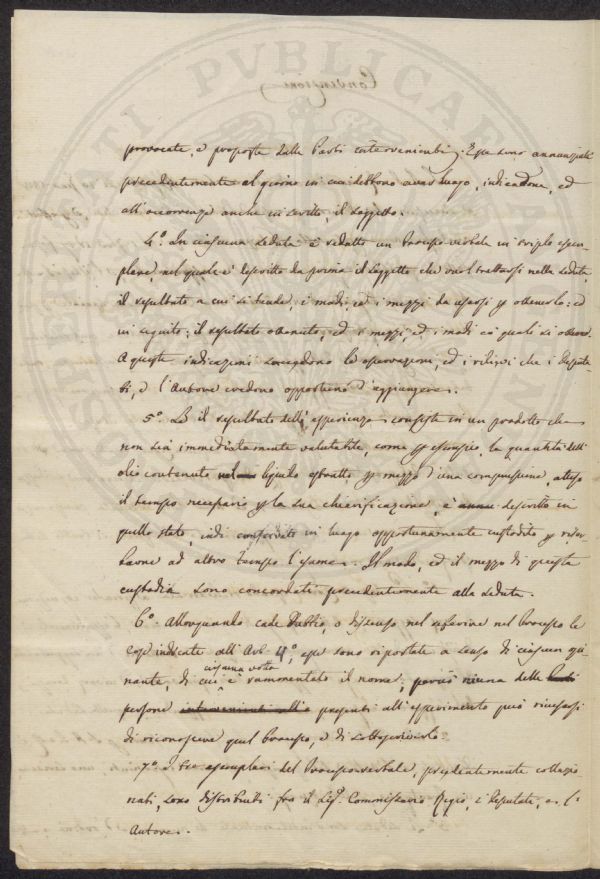 provocate, e proposte dalle Parti intervenienti. Esse sono annunziate
precedentemente al giorno in cui debbono aver luogo, indicandone, ed
all'occorrenza anche in iscritto, il soggetto.
4.° In ciascuna seduta è redatto un Processo-verbale in triplo esem-
plare, nel quale è descritto da prima il soggetto che vuol trattarsi nella seduta,
il resultato a cui si tende, i modi, ed i mezzi da usarsi p ottenerlo: ed
in seguito; il resultato ottenuto, ed i mezzi, ed i modi co' quali si ottenne.
A queste indicazioni succedono le osservazioni, ed i rilievi che i Deputa-
ti, e l'Autore credono opportuno d'aggiungere.
5.° Se il resultato dell'esperienza consiste in un prodotto che
non sia immediatamente valutabile, come p esempio, la quantità dell'
olio contenuto nel liquido estratto p mezzo d'una compressione, atteso
il tempo necessario p la sua chiarificazione, è descritto in
quello stato, indi conservato in luogo opportunamente custodito p riser-
barne ad altro tempo l'esame. Il modo, ed il mezzo di questa
custodia sono concordati precedentemente alla seduta.
6.° Allorquando cade dubbio, o dissenso nel referire nel Processo le
cose indicate all'Art. 4.°, esse sono riportate a senso di ciascun opi-
nante, di cui è ciascuna volta rammentato il nome; perciò niuna delle Parti
persone intervenienti all'e presenti all'esperimento può ricusarsi
di riconoscere quel Processo, e di sottoscriverlo.
7.° I tre esemplari del Processo-verbale, precedentemente collazio
nati, sono distribuiti fra il Sig.r Commissario Regio, i Deputati, e l'
Autore.
Convenzione